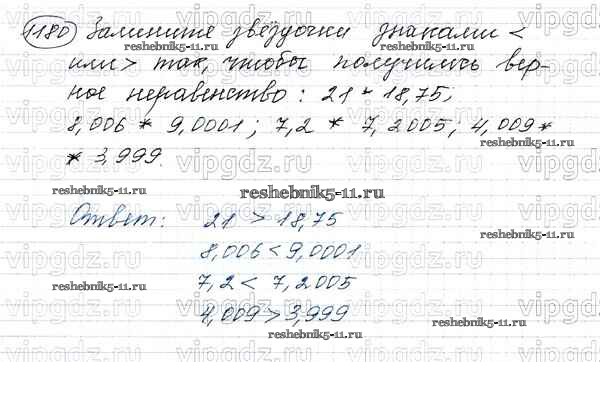 1180 Замените звёздочки знаками <
или > так, чтобы получилось вер-
ное неравенство: 21 * 18,75;
8,006 * 9,0001; 7,2 * 7,2005; 4,009 *
* 3,999.
Ответ: 21 > 18,75
8,006 < 9,0001
7,2 < 7,2005
4,009 > 3,999
vipgdz.ru
reshebnik5-11.ru